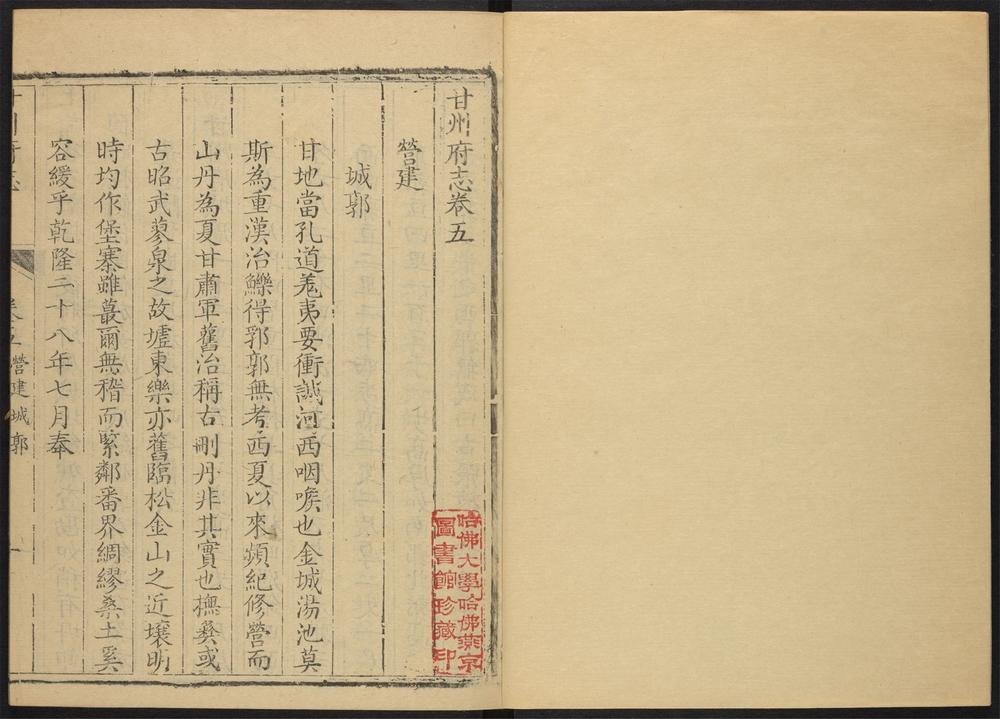 甘州府志卷五
營建
城郭
甘地當孔道羗夷要衝誠河西咽喉也金城湯池莫
斯為重漢治觻得郛郭無考西夏以來頻紀修營而
山丹為夏甘肅軍舊治稱古刪丹非其實也撫彝或
古昭武蓼泉之故墟東樂亦舊臨松金山之近壤明
時均作堡寨雖蕞爾無稽而緊鄰番界綢繆桑土奚
容緩乎乾隆二十八年七月奉
卷五 營建 城郭
一
哈佛大學哈佛燕京
圖書館珍藏印